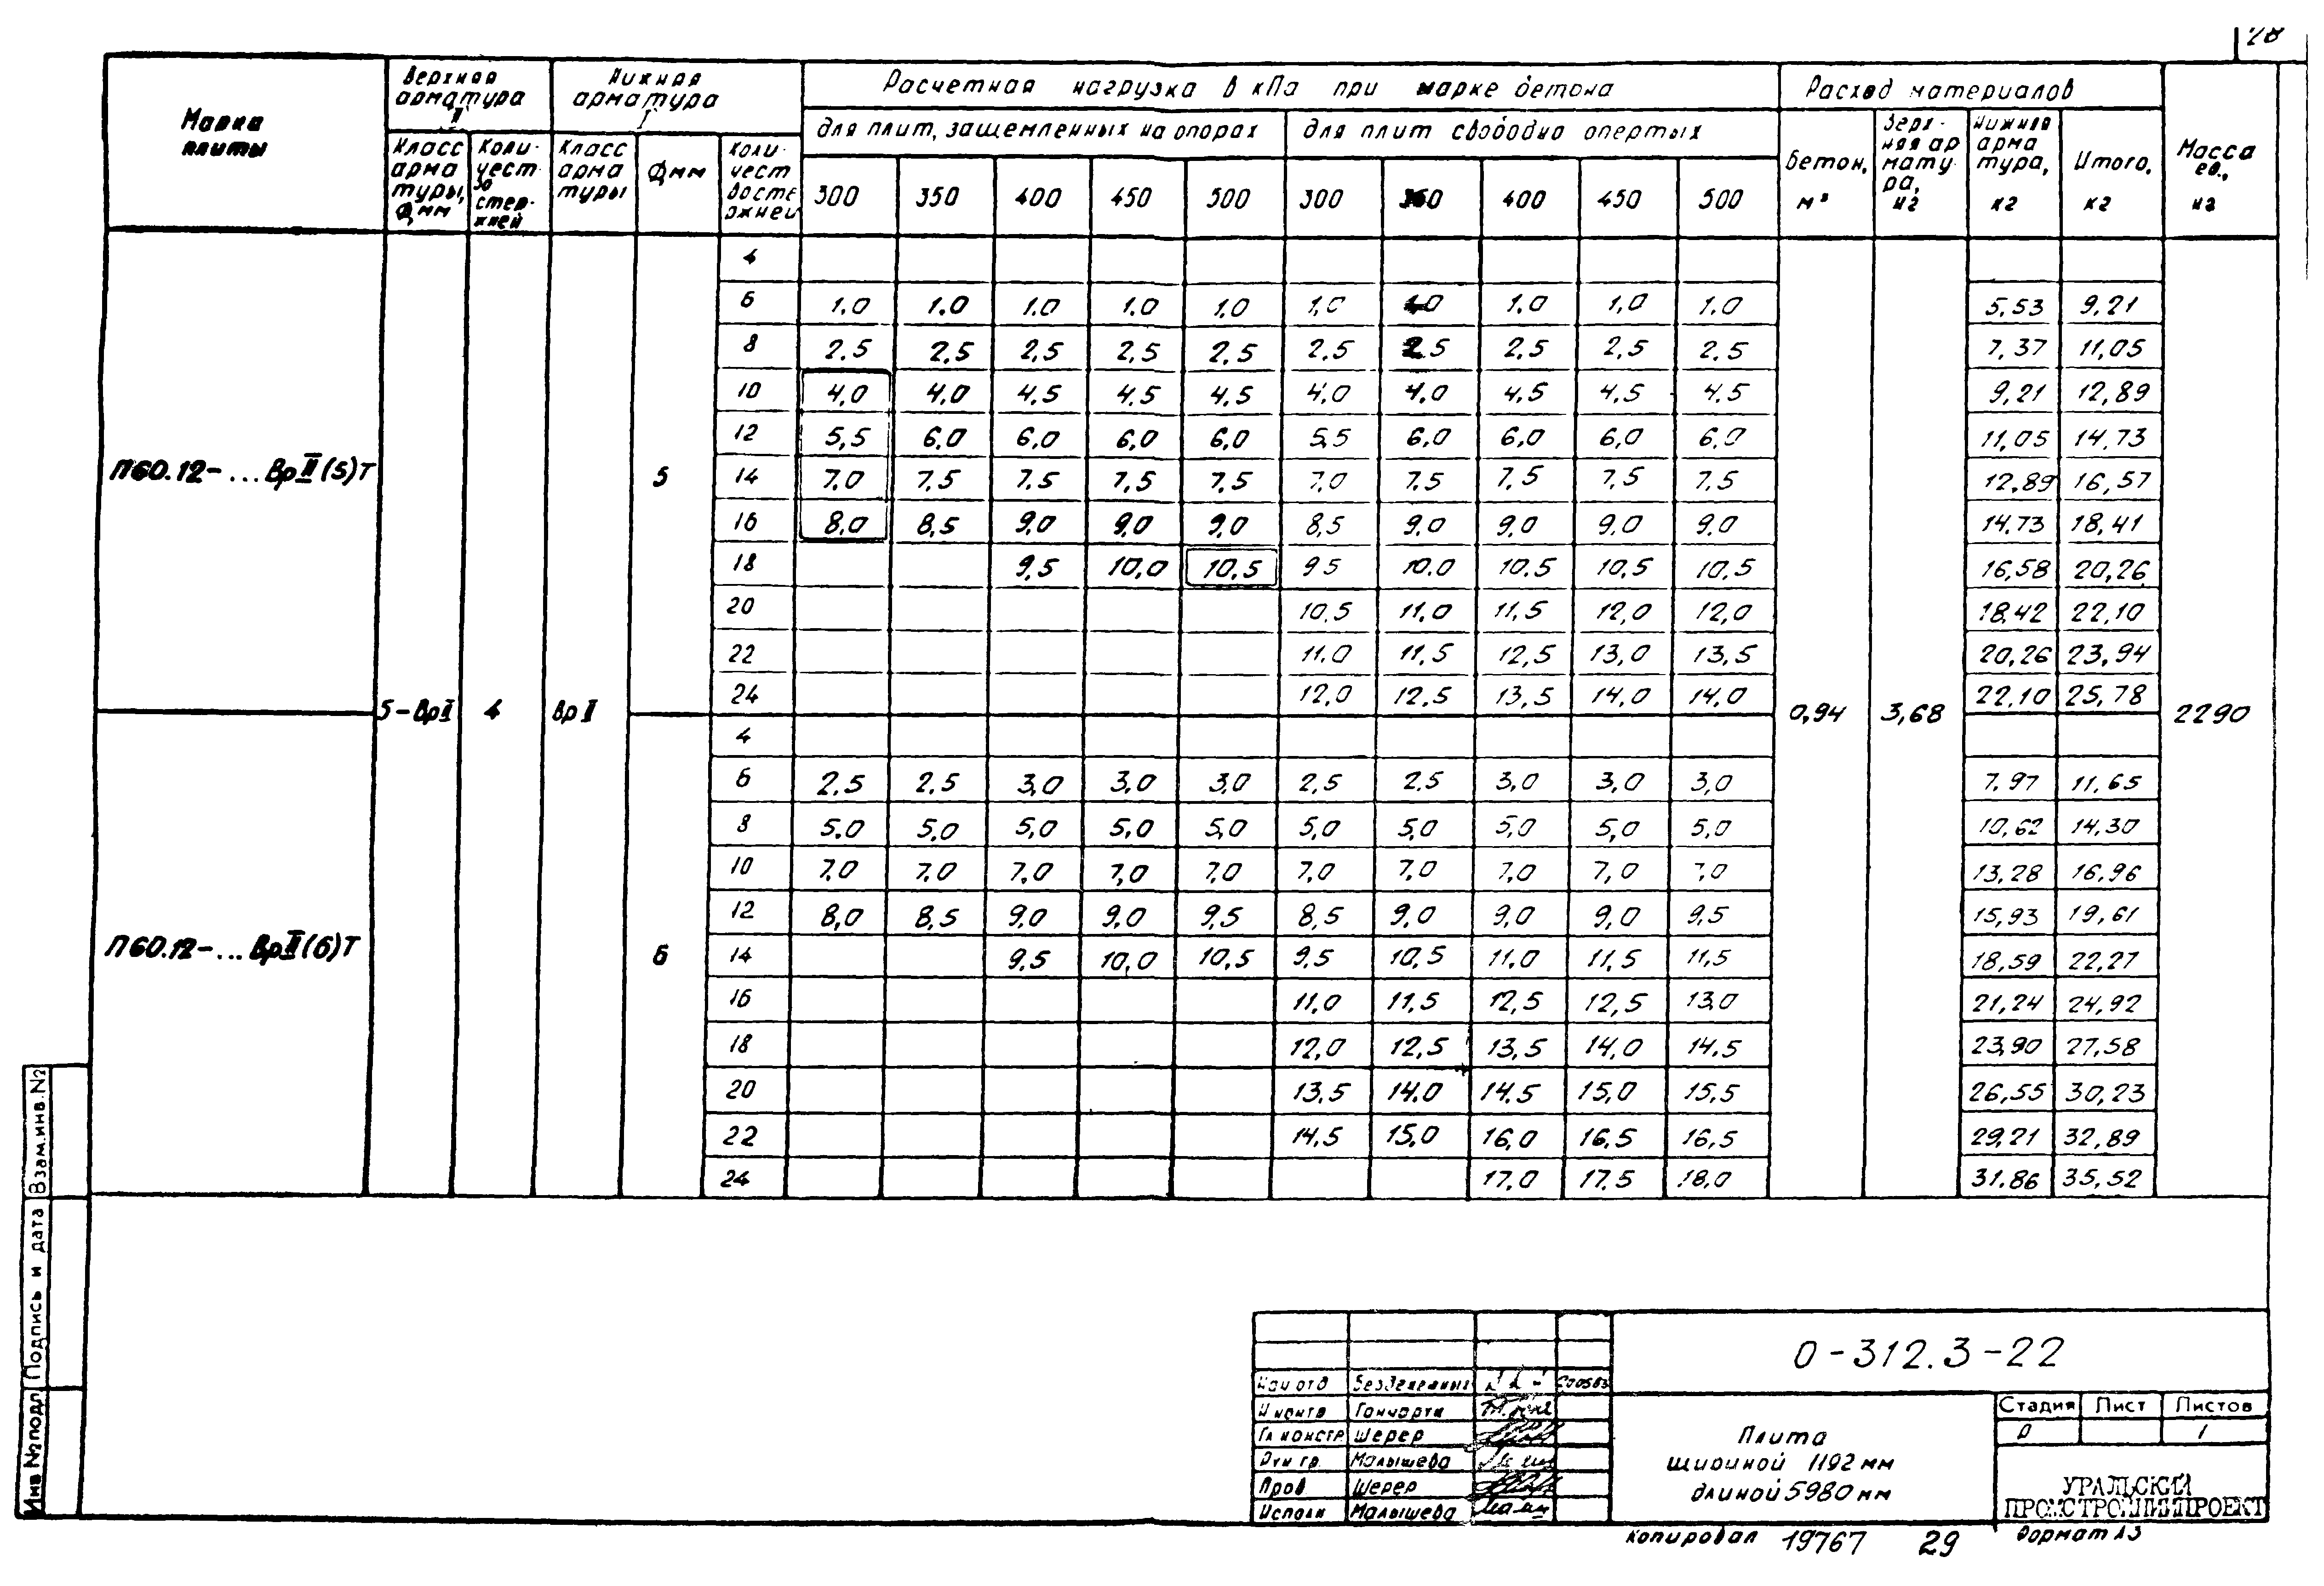 28
Марка плиты
Верхняя арматура II
Нижняя арматура I
Расчетная нагрузка в кПа при марке бетона
Расход материалов
Масса ед., кг
для плит, защемленных на опорах
для плит свободно опертых
Класс арматуры, Ф мм
Количество стержней
Класс арматуры
Ф мм
Количество стержней
300 350 400 450 500 300 350 400 450 500
Бетон, м³
Верхняя арматура, кг
Нижняя арматура, кг
Итого, кг
4
6 1,0 1.0 1.0 1.0 1.0 1,0 1.0 1.0 1,0 1.0 5,53 9,21
8 2.5 2.5 2,5 2,5 2,5 2,5 2.5 2,5 2,5 2,5 7,37 11,05
10 4,0 4.0 4.5 4,5 4,5 4,0 4.0 4,5 4,5 4,5 9,21 12,89
12 5,5 6.0 6,0 6,0 6,0 5,5 6,0 6,0 6,0 6,0 11,05 14,73
П60.12-...ВрII(5)Т 5 14 7.0 7.5 7.5 7,5 7,5 7,0 7.5 7,5 7,5 7,5 12,89 16,57
16 8,0 8,5 9,0 9,0 9,0 8,5 9,0 9,0 9,0 9,0 14,73 18,41
18 9,5 10,0 10,5 9 5 10.0 10.5 10,5 10,5 16,58 20,26
20 10.5 11,0 11,5 12,0 12,0 18,42 22,10
22 11.0 11,5 12,5 13,0 13,5 20,26 23,94
24 12,0 12,5 13,5 14,0 14,0 22,10 25,78
5-ВрI 4 ВрII 0,94 3,68 2290
4
6 2,5 2.5 3,0 3,0 3,0 2,5 2,5 3,0 3,0 3,0 7,97 11,65
8 5.0 5,0 5,0 5,0 5,0 5,0 5,0 5,0 5,0 5,0 10,62 14,30
10 7,0 7,0 7,0 7,0 7,0 7,0 7,0 7,0 7,0 7,0 13,28 16,96
12 8,0 8,5 9,0 9,0 9,5 8,5 9,0 9,0 9,0 9,5 15,93 19,61
П60.12-...ВрII(6)Т 6 14 9.5 10,0 10,5 9,5 10,5 11,0 11,5 11,5 18,59 22,27
16 11,0 11,5 12,5 12,5 13,0 21,24 24,92
18 12,0 12,5 13,5 14,0 14,5 23,90 27,58
20 13,5 14.0 14.5 15,0 15,5 26,55 30,23
22 14,5 15,0 16,0 16,5 16,5 29,21 32,89
24 17,0 17,5 18,0 31,86 35,52
Взам.инв.№
Подпись и дата
Инв №подл
0-312.3-22
Нач отд
Н контр Гончарти
Гл констр Шерер
Рук гр. Малышева
Пров Шерер
Исполн Малышева
Плита
шириной 1192 мм
длиной 5980 мм
Стадия Лист Листов
Р 1
УРАЛЬСКИЙ
ПРОМСТРОЙНИИПРОЕКТ
Копировал 19767 29 Формат А3